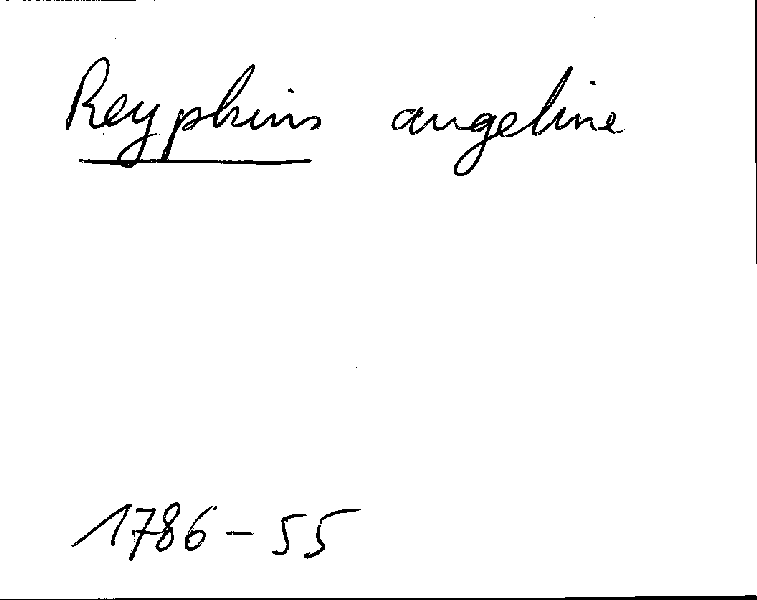 Reypkins angeline
1786-55